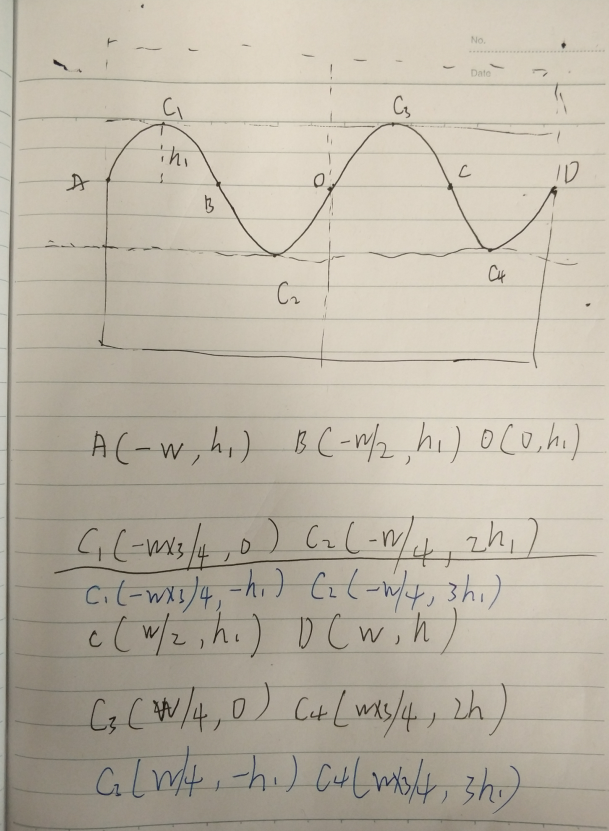 No.
Date
C1 C3
h1
A O C D
B
C2 C4
A(-w, h1) B(-w/2, h1) O(0, h1)
C1(-w×3/4, 0) C2(-w/4, 2h1)
C1(-w×3/4, -h1) C2(-w/4, 3h1)
C(w/2, h1) D(w, h)
C3(w/4, 0) C4(w×3/4, 2h)
C3(w/4, -h1) C4(w×3/4, 3h1)